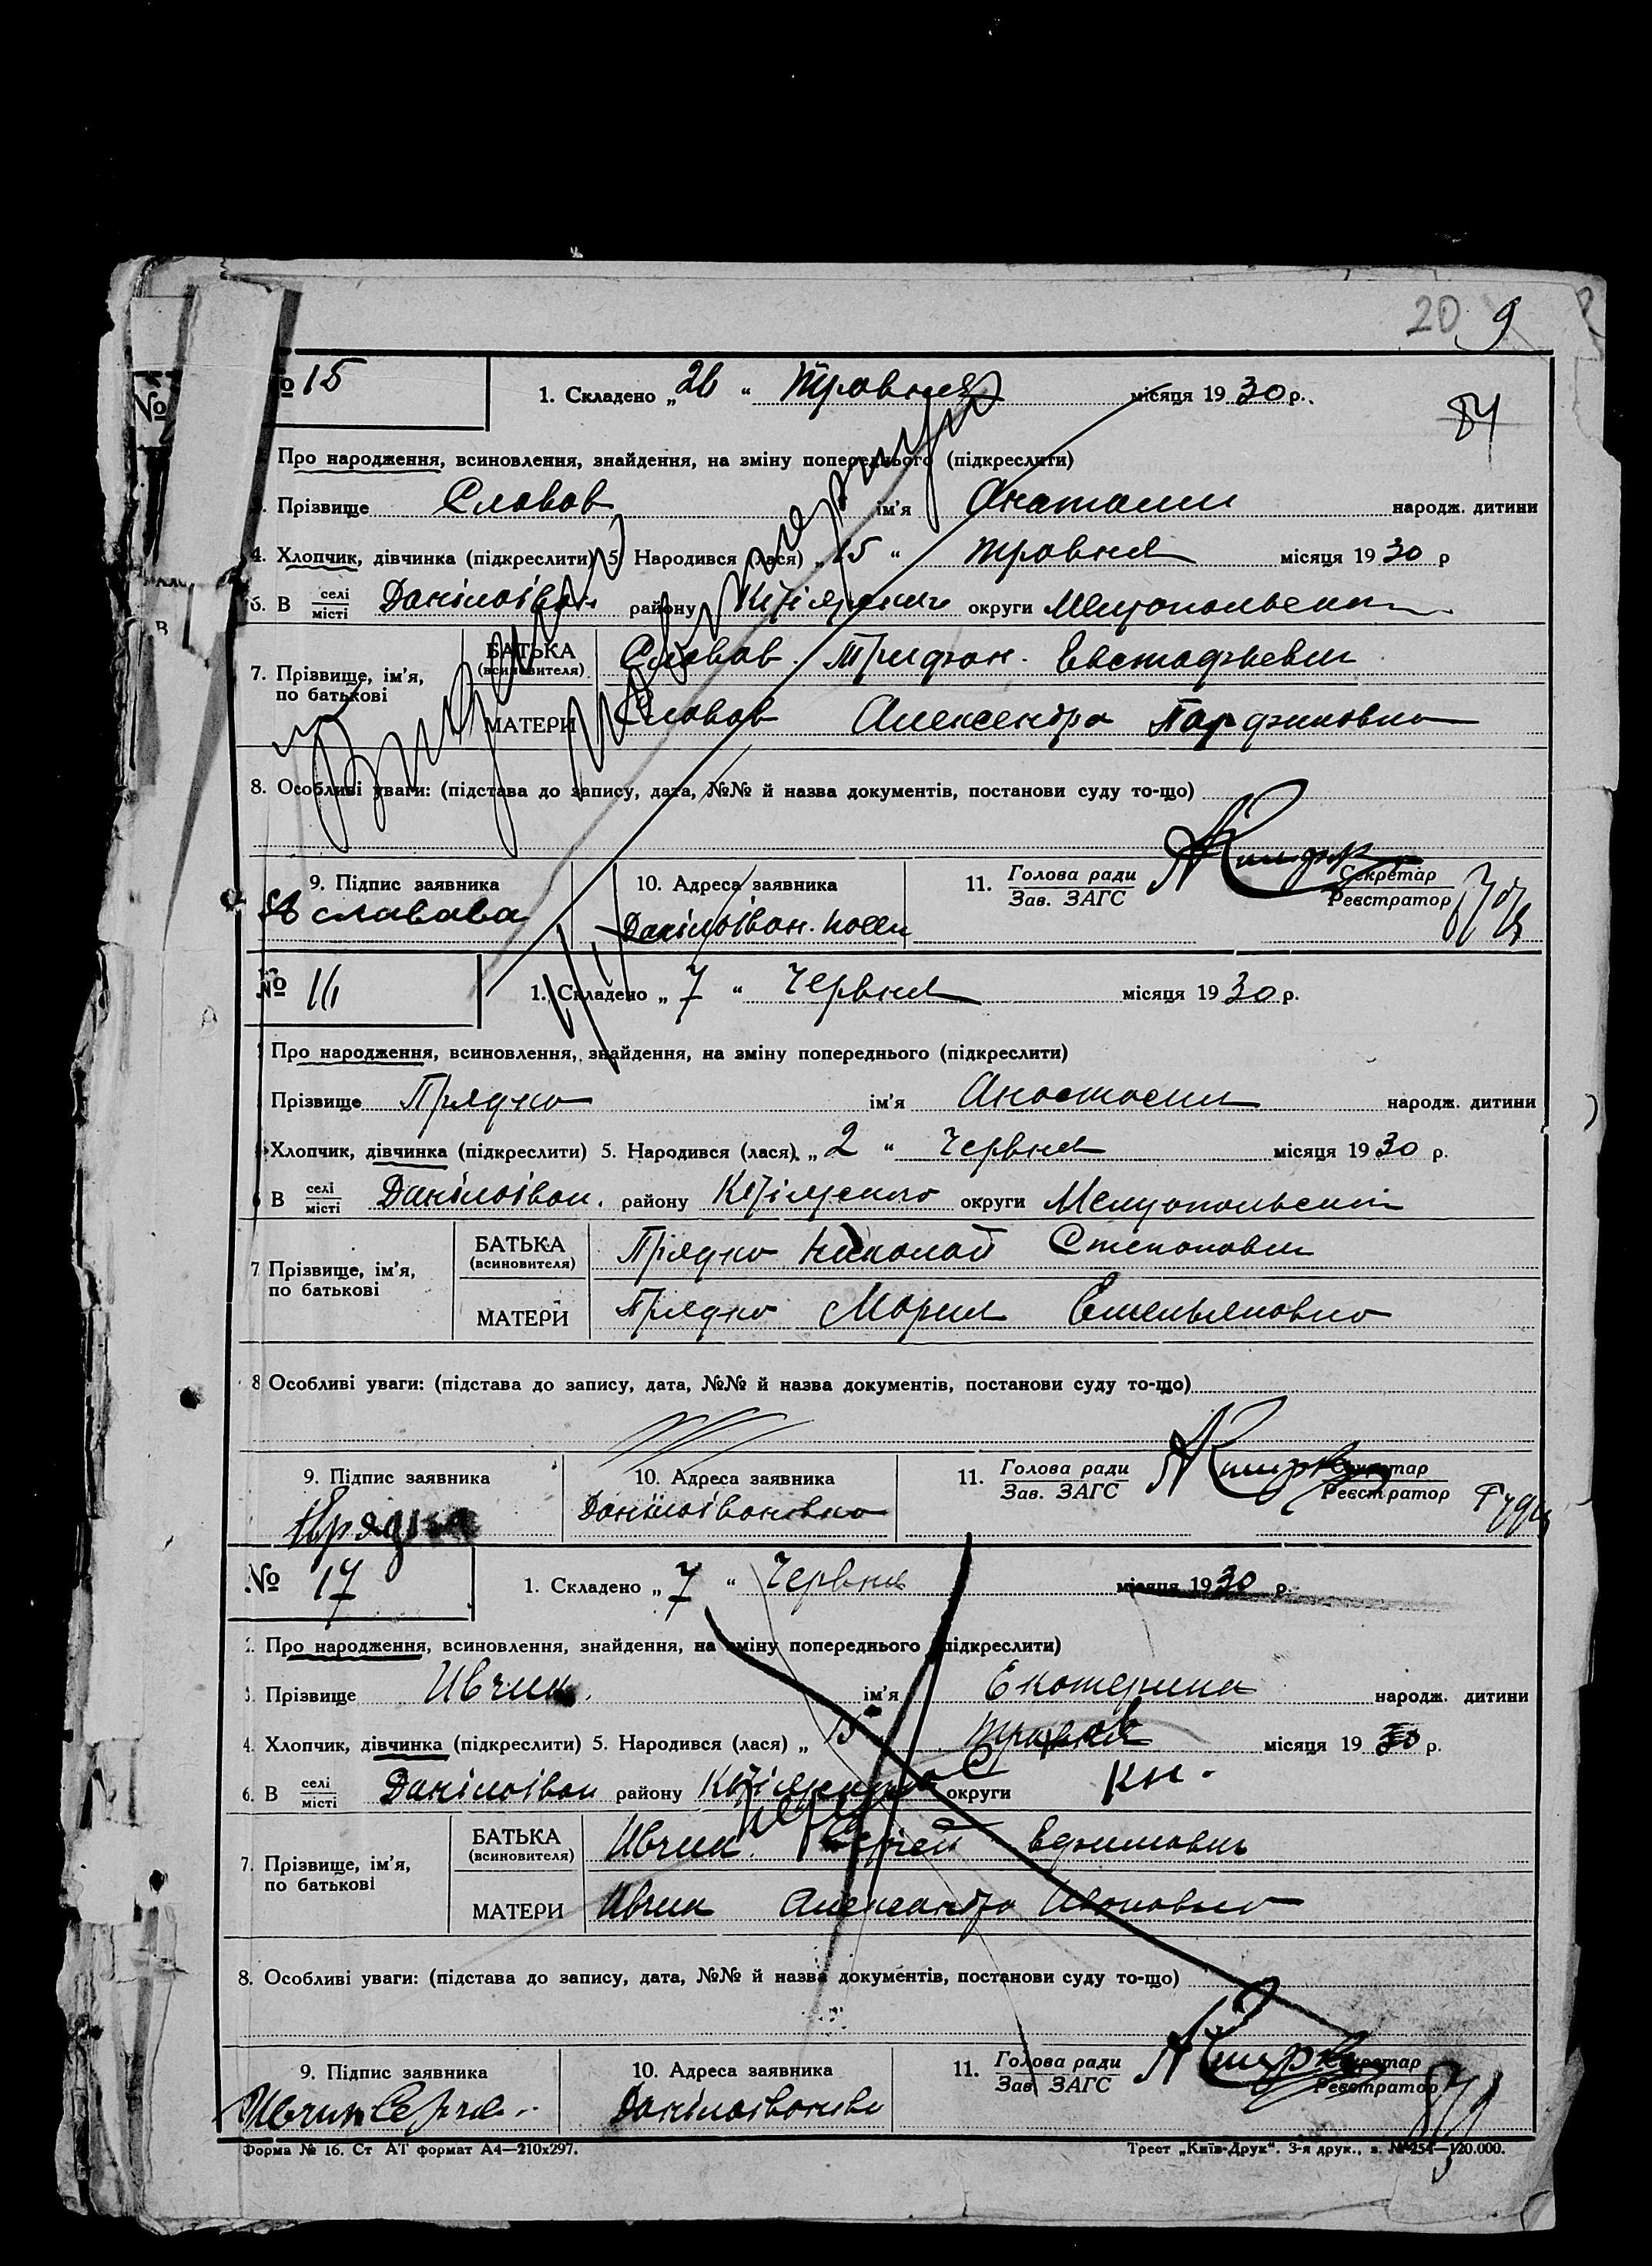 20 9
84
№ 15
1. Складено „ 26 “ Травня місяця 1930 р.
Про народження, всиновлення, знайдення, на зміну попереднього (підкреслити)
3. Прізвище Словов ім'я Анатолий народж. дитини
4. Хлопчик, дівчинка (підкреслити) 5. Народився (лася) „ 15 “ травня місяця 1930 р
6. В селі/місті Данілоіван району округи Мелітопольської
7. Прізвище, ім'я, по батькові
БАТЬКА (всиновителя) Словов Трифон Евстафьевич
МАТЕРИ Словов Александра Парфиновна
8. Особливі уваги: (підстава до запису, дата, №№ й назва документів, постанови суду то-що)
9. Підпис заявника 10. Адреса заявника 11. Голова ради/Зав. ЗАГС Секретар/Реєстратор
Славова Данілоіван.
№ 16
1. Складено „ 7 “ Червня місяця 1930 р.
Про народження, всиновлення, знайдення, на зміну попереднього (підкреслити)
Прізвище Прядко ім'я Анастасия народж. дитини
Хлопчик, дівчинка (підкреслити) 5. Народився (лася) „ 2 “ Червня місяця 1930 р.
6 В селі/місті Данілоіван. району округи Мелітопольской
7 Прізвище, ім'я, по батькові
БАТЬКА (всиновителя) Прядко Николай Степанович
МАТЕРИ Прядко Мария Емельяновна
8 Особливі уваги: (підстава до запису, дата, №№ й назва документів, постанови суду то-що)
9. Підпис заявника 10. Адреса заявника 11. Голова ради/Зав. ЗАГС Секретар/Реєстратор
Данілоівановка
№ 17
1. Складено „ 7 “ Червня місяця 1930 р.
2. Про народження, всиновлення, знайдення, на зміну попереднього (підкреслити)
3. Прізвище Ивчик. ім'я Екатерина народж. дитини
4. Хлопчик, дівчинка (підкреслити) 5. Народився (лася) „ 15 травня місяця 1930 р.
6. В селі/місті Данілоіван району округи
7. Прізвище, ім'я, по батькові
БАТЬКА (всиновителя) Ивчик Сергей Ефимович
МАТЕРИ Ивчик Александра Ивановна
8. Особливі уваги: (підстава до запису, дата, №№ й назва документів, постанови суду то-що)
9. Підпис заявника 10. Адреса заявника 11. Голова ради/Зав. ЗАГС Секретар/Реєстратор
Ивчик Данілоіванівк
Форма № 16. Ст АТ формат А4—210х297. Трест „Київ-Друк“. 3-я друк., з. № 254—120.000.